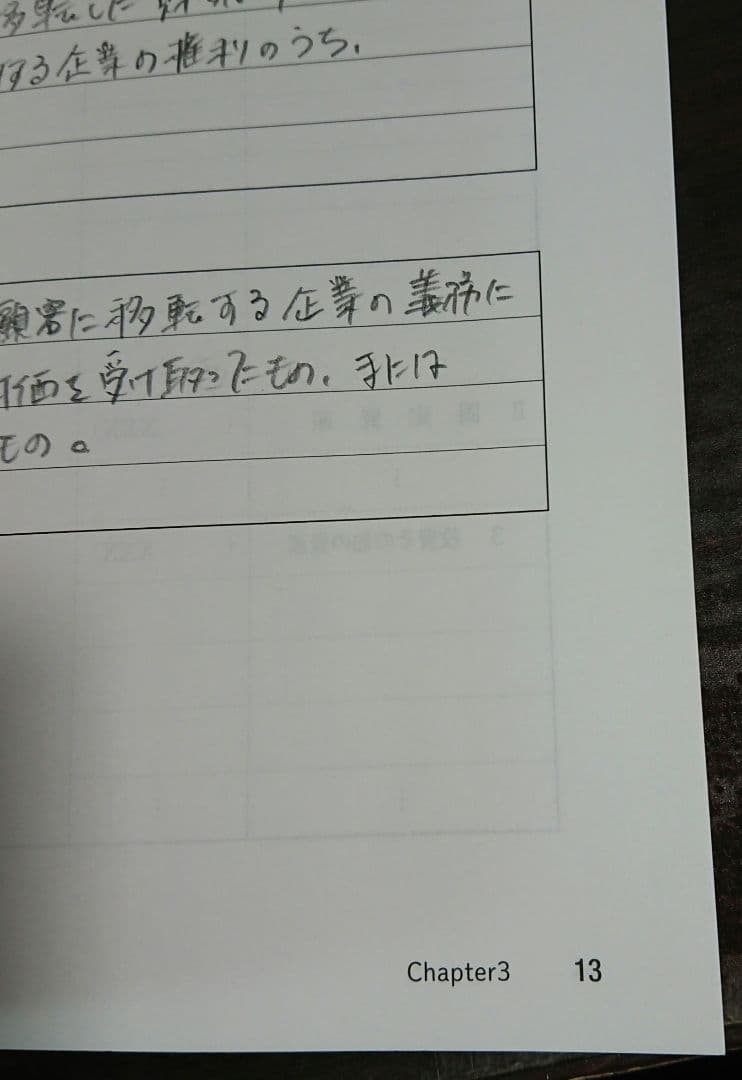 移転した
する企業の権利のうち、
顧客に移転する企業の義務に
対価を受け取ったもの、または
もの。
Chapter3 13